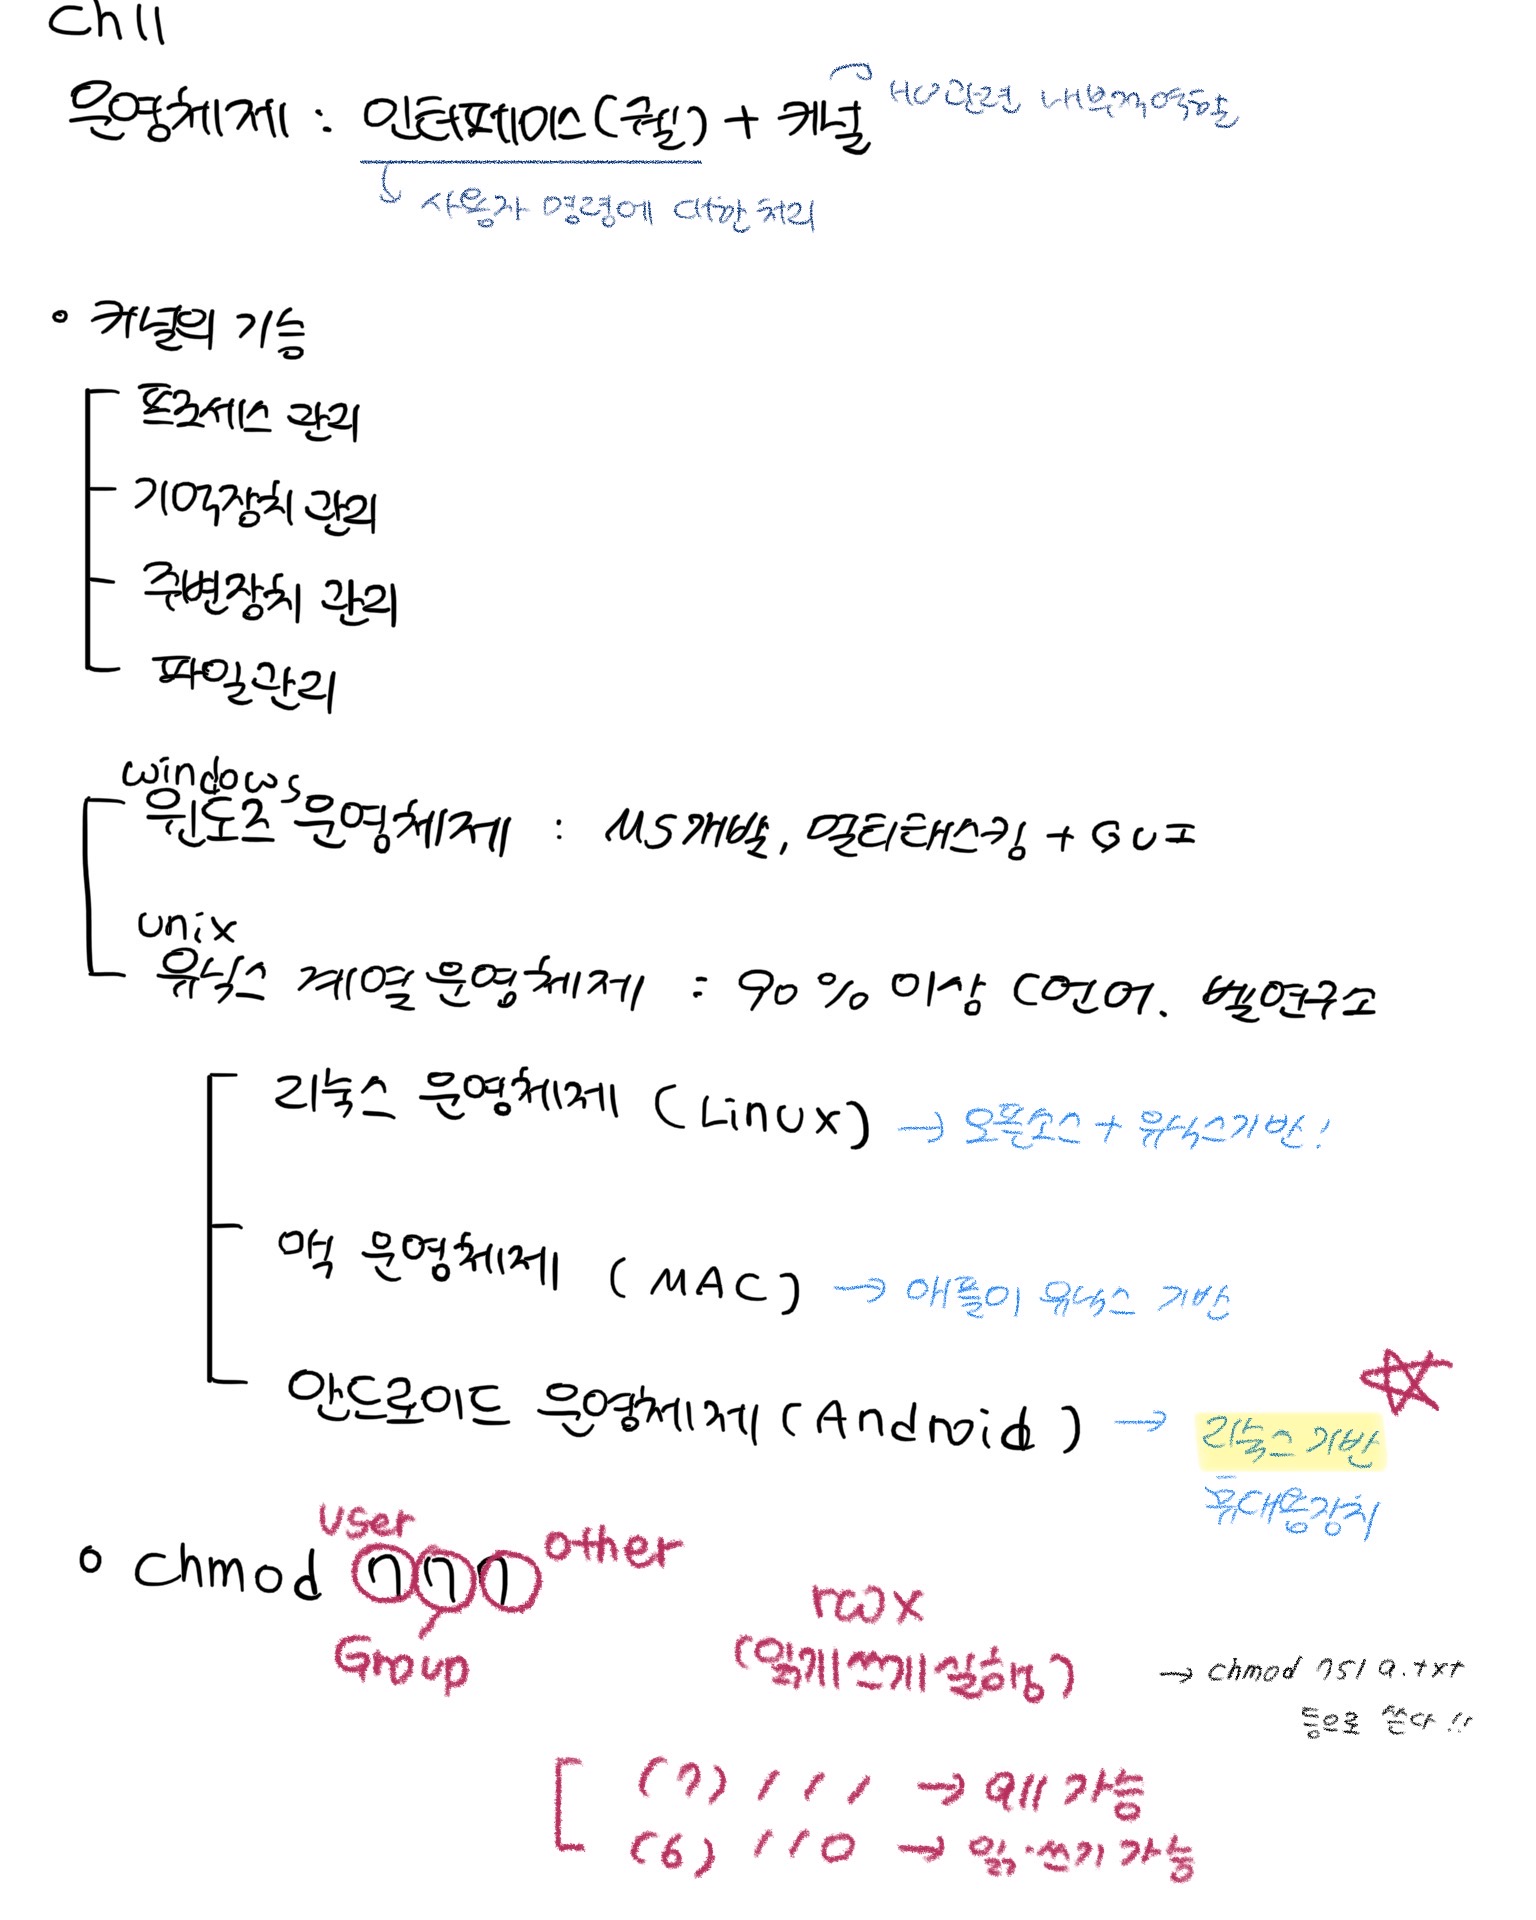 Ch 11
운영체제 : 인터페이스(쉘) + 커널
HW관련 내부적역할
사용자 명령에 대한처리
○ 커널의 기능
프로세스 관리
기억장치 관리
주변장치 관리
파일관리
windows
윈도즈 운영체제 : MS개발, 멀티태스킹 + GUI
unix
유닉스 계열 운영체제 : 90% 이상 C언어. 벨연구소
리눅스 운영체제 (Linux) → 오픈소스 + 유닉스기반!
맥 운영체제 (MAC) → 애플이 유닉스 기반
안드로이드 운영체제 (Android) → 리눅스 기반
휴대용장치
user
○ chmod 777 other
Group
rwx
(읽게쓰게실행)
→ chmod 751 a.txt
등으로 쓴다!!
(7) 1 1 1 → all 가능
(6) 1 1 0 → 읽·쓰기 가능